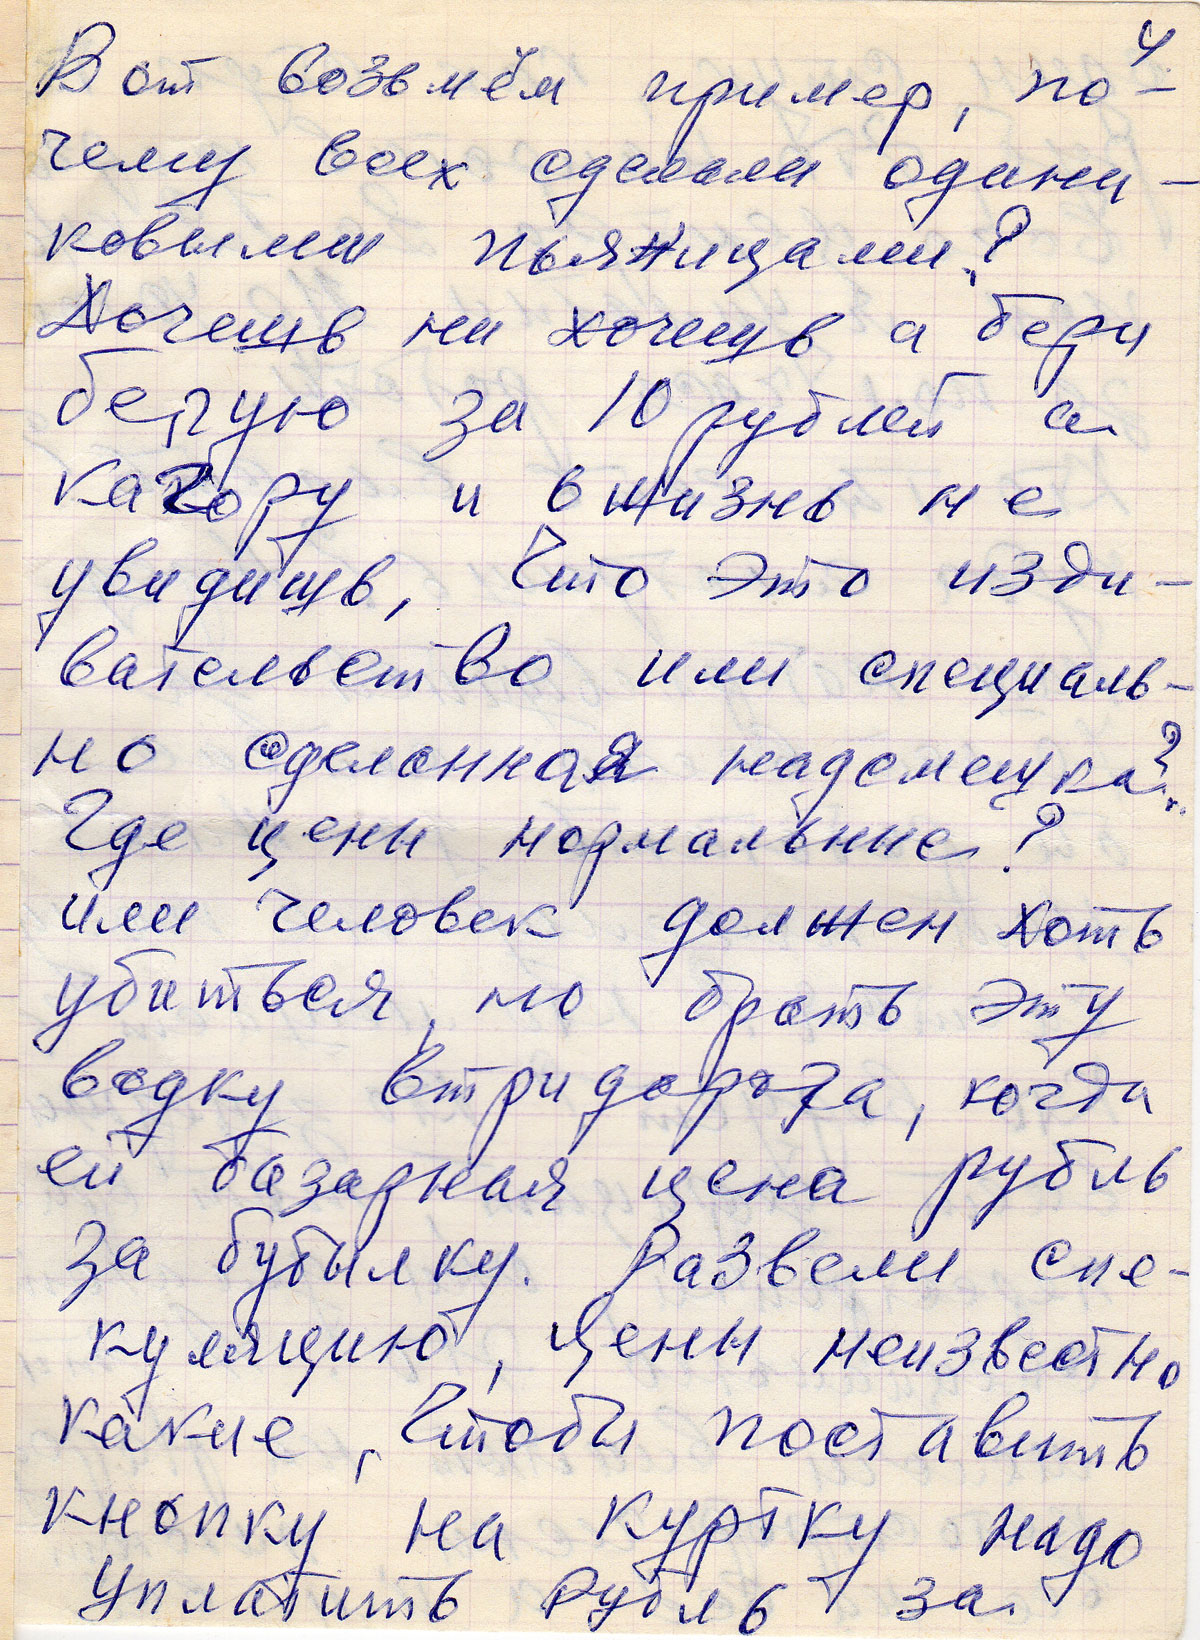 4
Вот возьмём пример, по-
чему всех сделали одина-
ковыми пьяницами?
Хочешь ни хочешь а бери
белую за 10 рублей а
кагору и в жизнь не
увидишь, Что это изди-
вательство или специаль-
но сделанная надсмешка?..
Где цены нормальные?
или человек должен хоть
убиться, но брать эту
водку втридорога, когда
ей базарная цена рубль
за бутылку. Развели спе-
куляцию, цены неизвестно
какие, Чтобы поставить
кнопку на куртку надо
уплатить рубль за